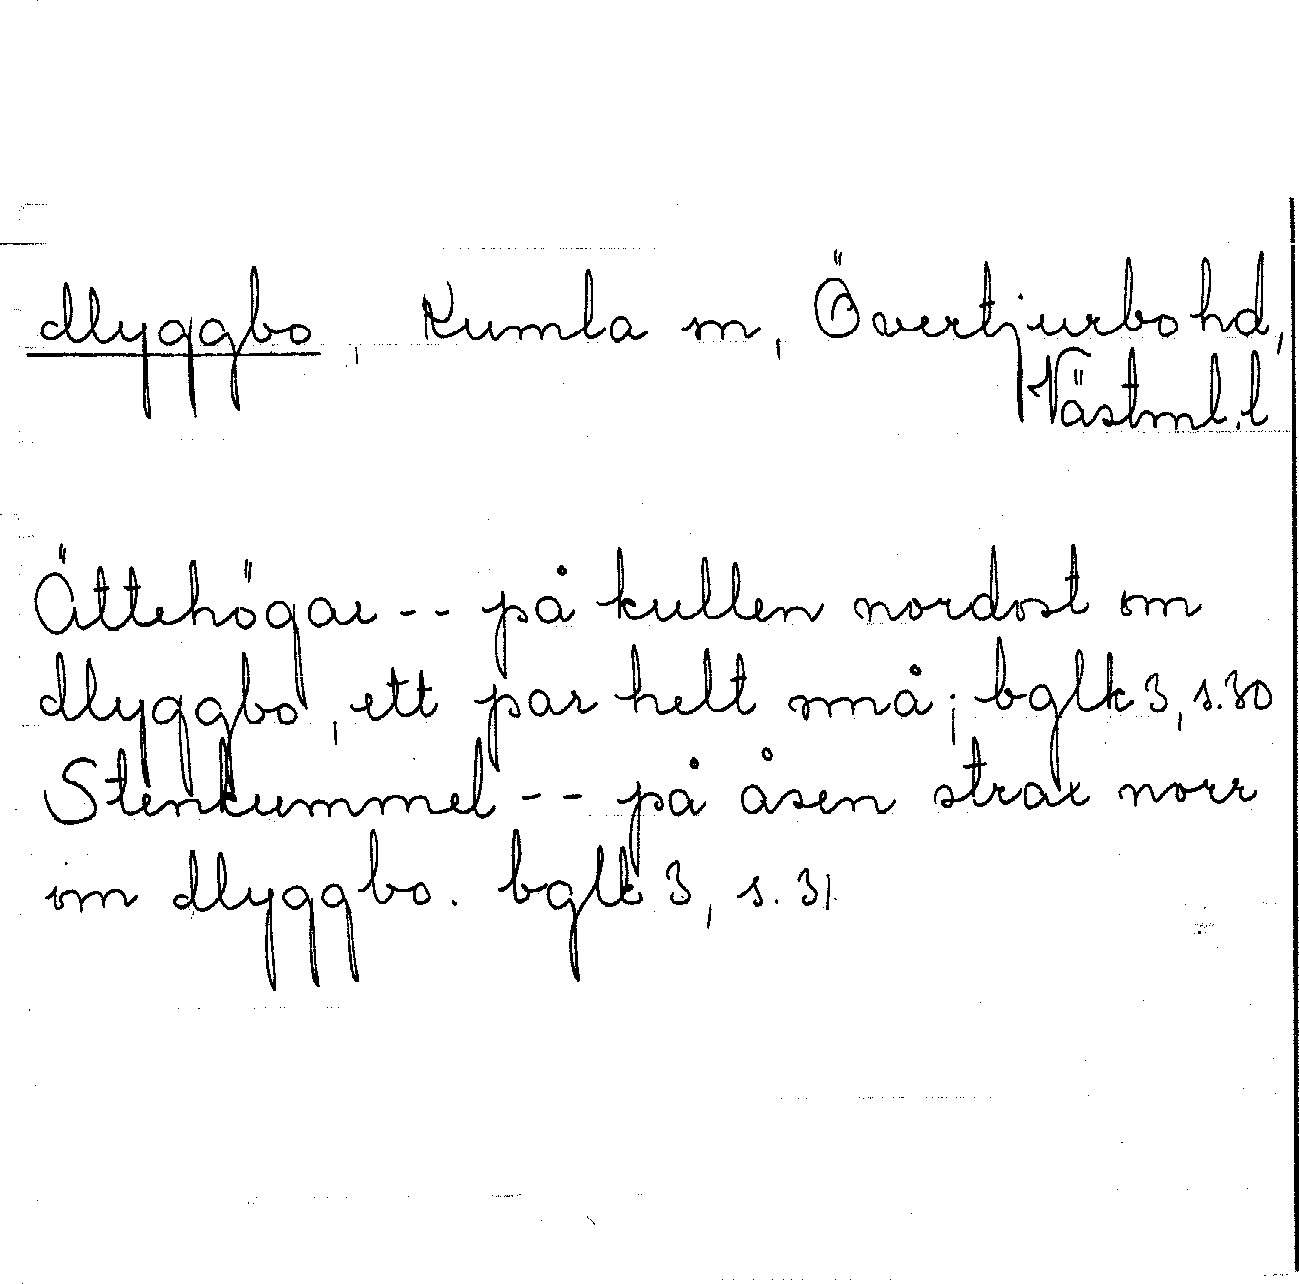 Myggbo, Kumla sn, Övertjurbo hd,
Västml.l
Ättehögar -- på kullen nordost om
Myggbo, ett par helt små; bglk 3, s.30
Stenkummel -- på åsen strax norr
om Myggbo. bglk 3, s.31